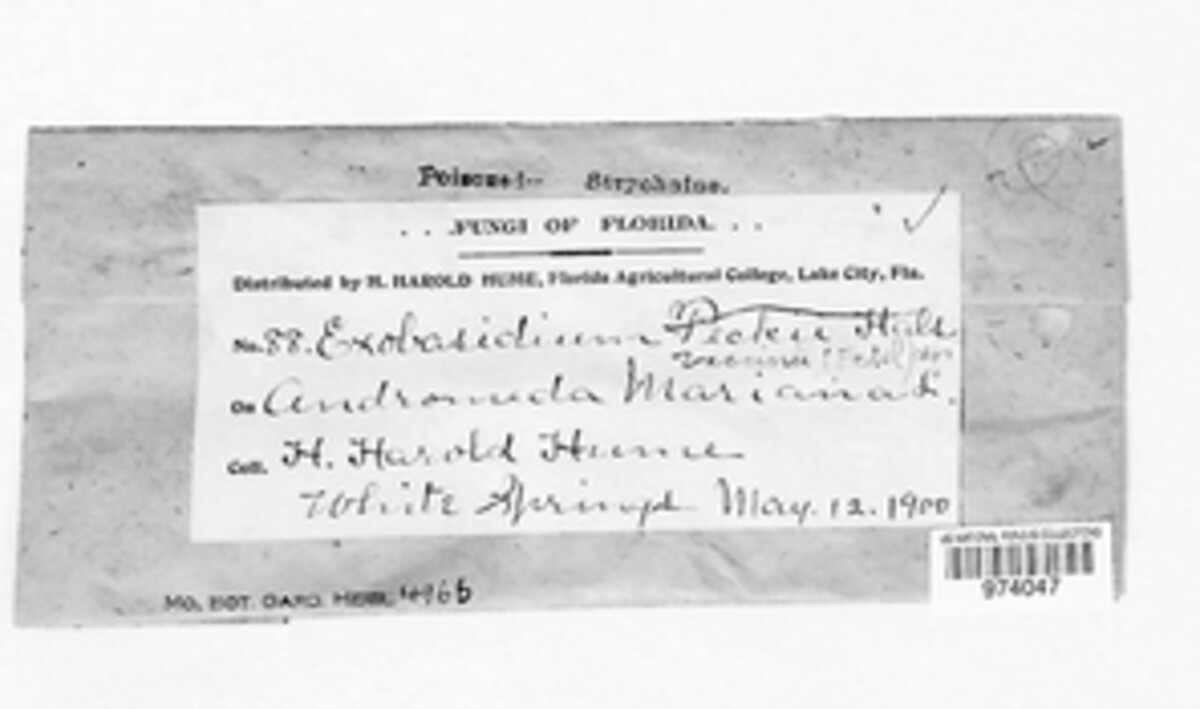 Poisoned-- Strychnine.
. . .FUNGI OF FLORIDA. . .
Distributed by H. HAROLD HUME, Florida Agricultural College, Lake City, Fla.
No. 88. Exobasidium Peckii
On Andromeda Mariana L.
Coll. H. Harold Hume
White Springs May. 12. 1900
US NATIONAL FUNGUS COLLECTIONS
974047
MO. BOT. GARD. HERB.